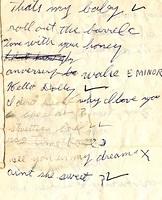 thats my baby ✓
roll out the barrel c
Time with your honey
anversery walse E MINOR
Hello Dolly ✓
I don't know why I love you
see you in my dreams X
aint she sweet ? ✓